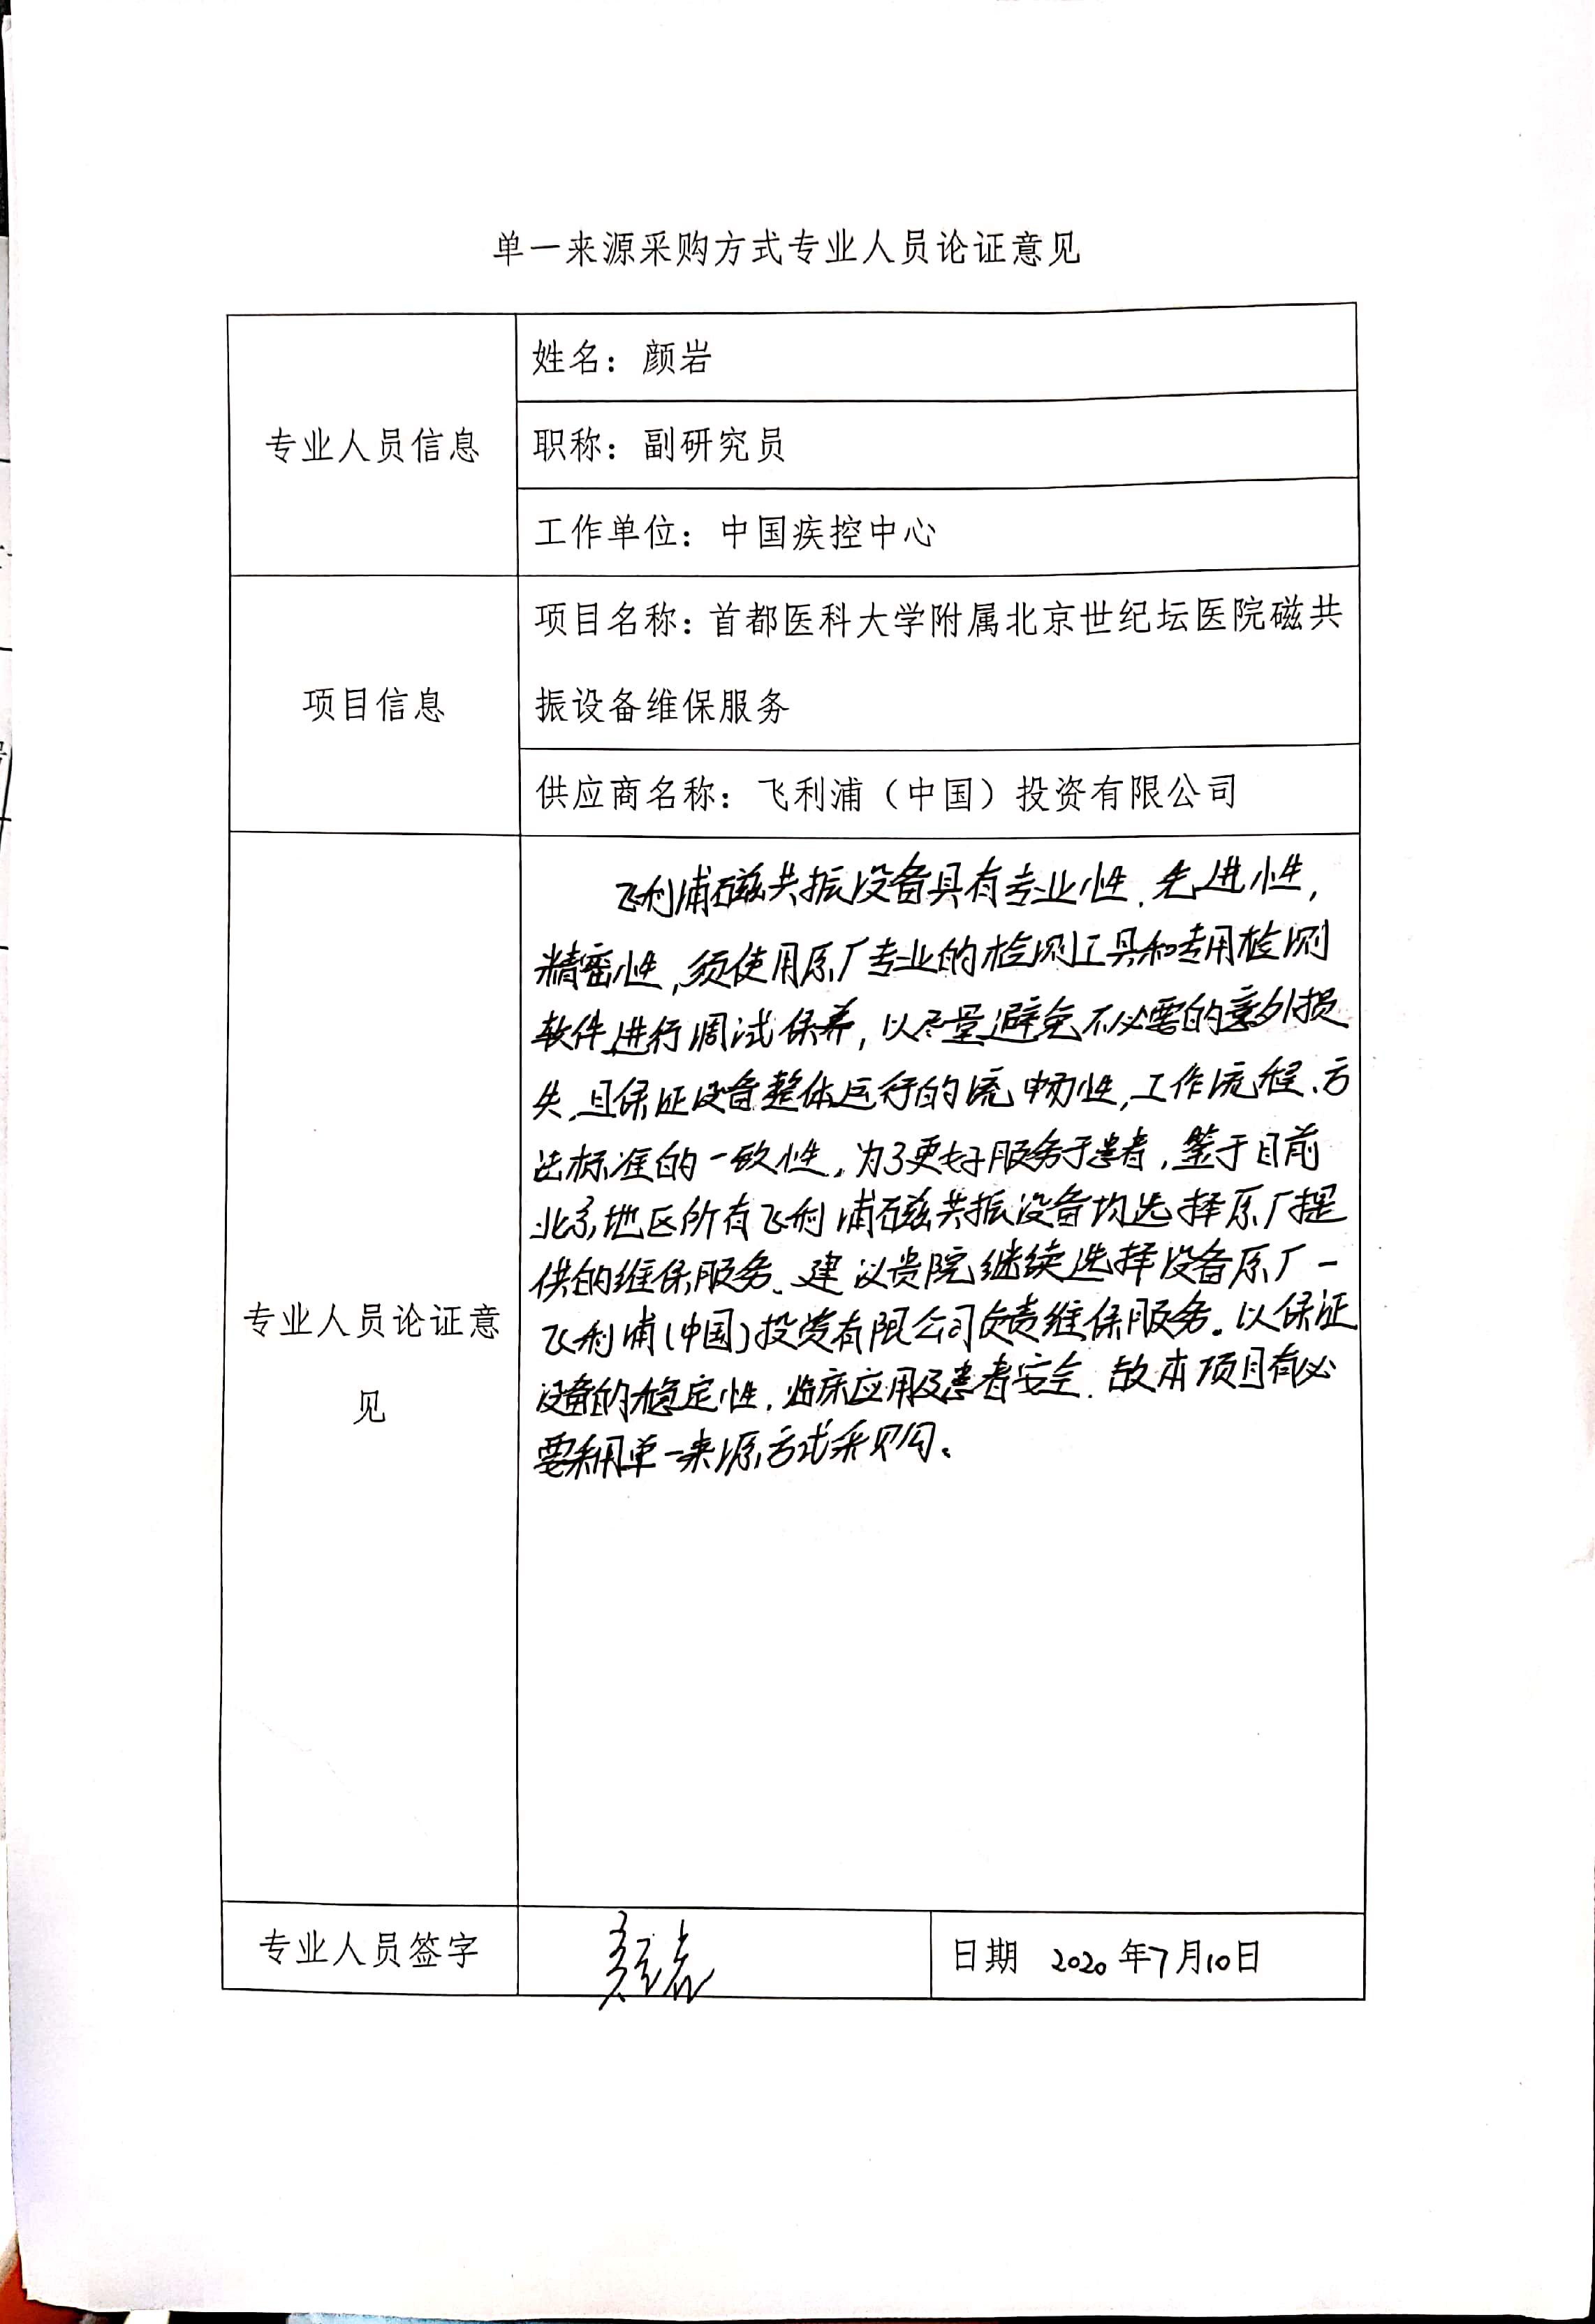 单一来源采购方式专业人员论证意见
专业人员信息
姓名：颜岩
职称：副研究员
工作单位：中国疾控中心
项目信息
项目名称：首都医科大学附属北京世纪坛医院磁共
振设备维保服务
供应商名称：飞利浦（中国）投资有限公司
专业人员论证意
见
飞利浦磁共振设备具有专业性、先进性，
精密性，须使用原厂专业的检测工具和专用检测
软件进行调试保养，以尽量避免不必要的意外损
失，且保证设备整体运行的流畅性，工作流程、方
法标准的一致性，为了更好服务于患者，鉴于目前
北京地区所有飞利浦磁共振设备均选择原厂提
供的维保服务、建议贵院继续选择设备原厂一
飞利浦（中国）投资有限公司负责维保服务。以保证
设备的稳定性，临床应用及患者安全．故本项目有必
要采用单一来源方式采购。
专业人员签字
颜岩
日期 2020年7月10日